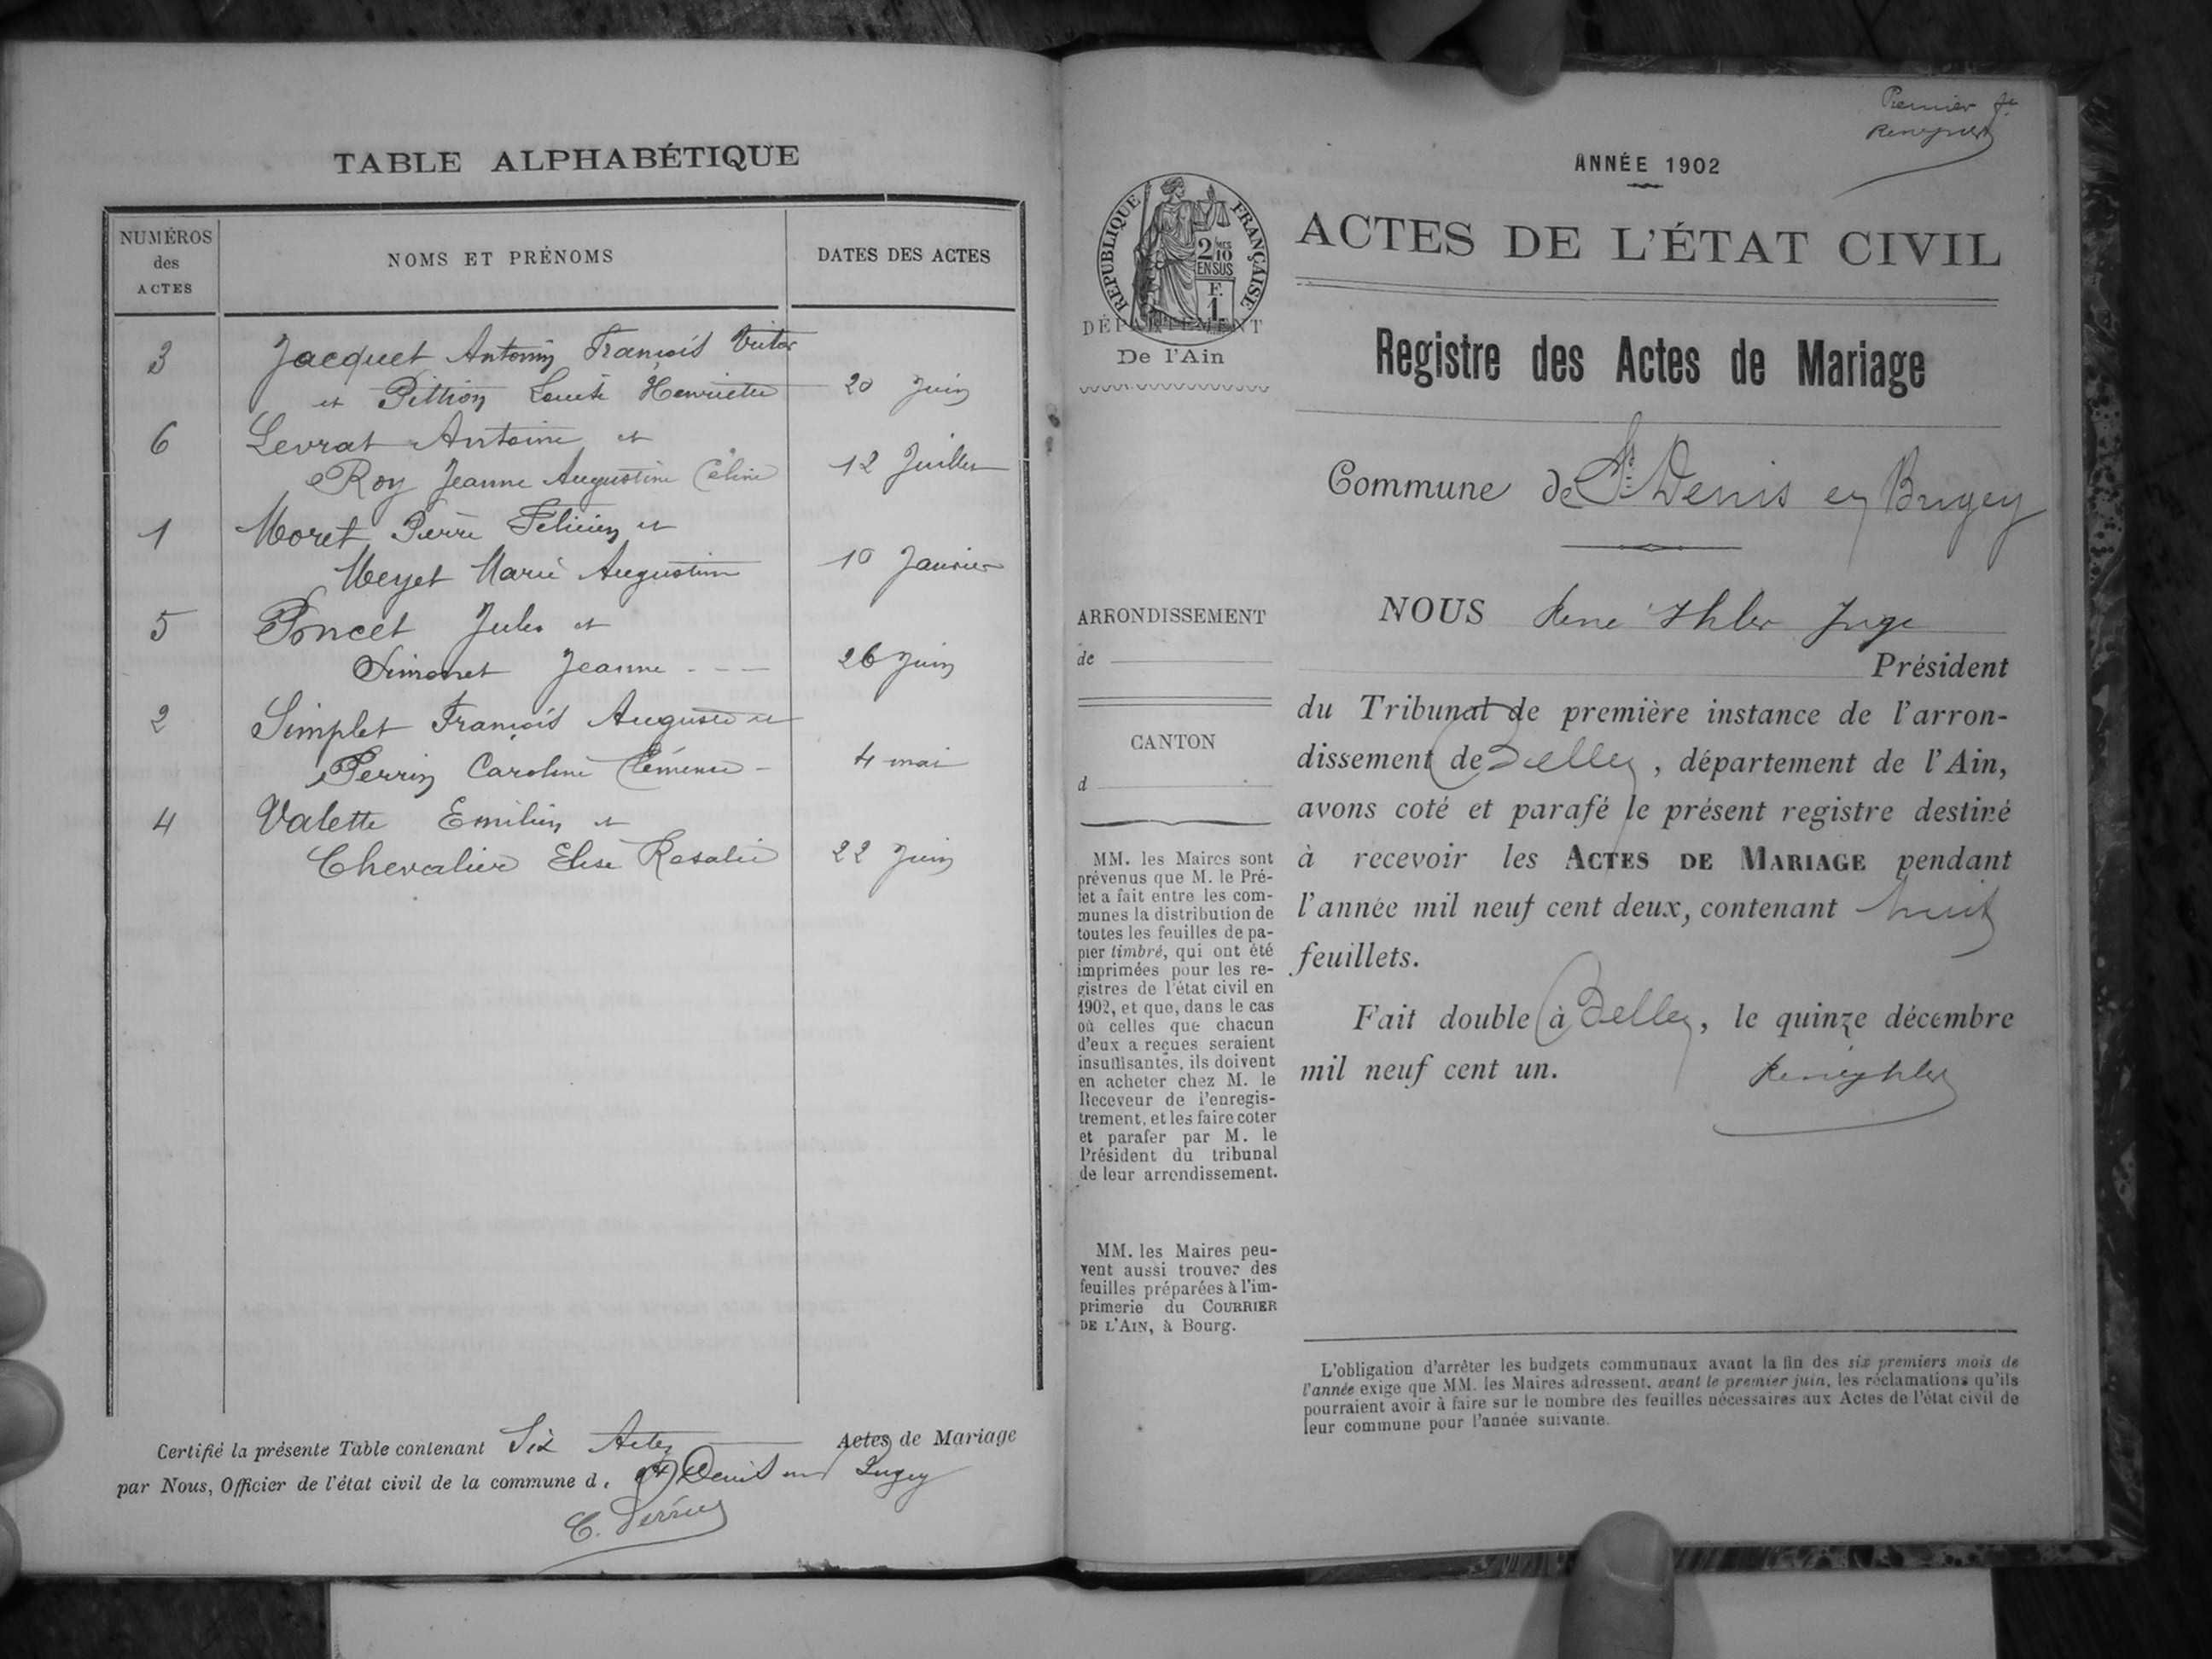 TABLE ALPHABÉTIQUE
NUMÉROS des ACTES
NOMS ET PRÉNOMS
DATES DES ACTES
3 Jacquet Antonin François Victor
et Pittion Louise Henriette 20 Juin
6 Levrat Antoine et
Roy Jeanne Augustine Céline 12 Juillet
1 Moret Pierre Félicien et
Meyet Marie Augustine 10 Janvier
5 Poncet Jules et
Simonet Jeanne - - - 26 Juin
2 Simplet François Auguste et
Perrin Caroline Clémence - 4 mai
4 Valette Emilien et
Chevalier Elise Rosalie 22 Juin
Certifié la présente Table contenant Six Actes Actes de Mariage
par Nous, Officier de l'état civil de la commune d. St Denis en Bugey
Premier ft
ANNÉE 1902
RÉPUBLIQUE FRANÇAISE
2/10
MES
EN SUS
F.
1
DÉPARTEMENT
De l'Ain
ACTES DE L'ÉTAT CIVIL
Registre des Actes de Mariage
Commune de St Denis en Bugey
ARRONDISSEMENT
de
CANTON
d
MM. les Maires sont
prévenus que M. le Pré-
fet a fait entre les com-
munes la distribution de
toutes les feuilles de pa-
pier timbré, qui ont été
imprimées pour les re-
gistres de l'état civil en
1902, et que, dans le cas
où celles que chacun
d'eux a reçues seraient
insuffisantes, ils doivent
en acheter chez M. le
Receveur de l'enregis-
trement, et les faire coter
et parafer par M. le
Président du tribunal
de leur arrondissement.
MM. les Maires peu-
vent aussi trouver des
feuilles préparées à l'im-
primerie du COURRIER
DE L'AIN, à Bourg.
NOUS René Ihler Juge
Président
du Tribunal de première instance de l'arron-
dissement de Belley, département de l'Ain,
avons coté et parafé le présent registre destiné
à recevoir les ACTES DE MARIAGE pendant
l'année mil neuf cent deux, contenant huit
feuillets.
Fait double à Belley, le quinze décembre
mil neuf cent un.
René Ihler
L'obligation d'arrêter les budgets communaux avant la fin des six premiers mois de
l'année exige que MM. les Maires adressent, avant le premier juin, les réclamations qu'ils
pourraient avoir à faire sur le nombre des feuilles nécessaires aux Actes de l'état civil de
leur commune pour l'année suivante.